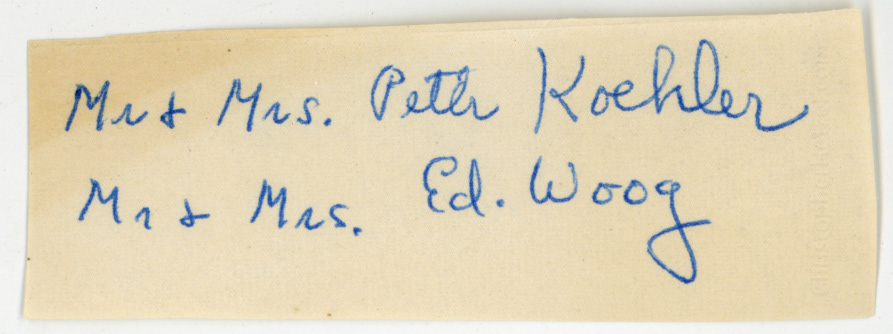 Mr & Mrs. Peter Koehler
Mr & Mrs. Ed. Woog